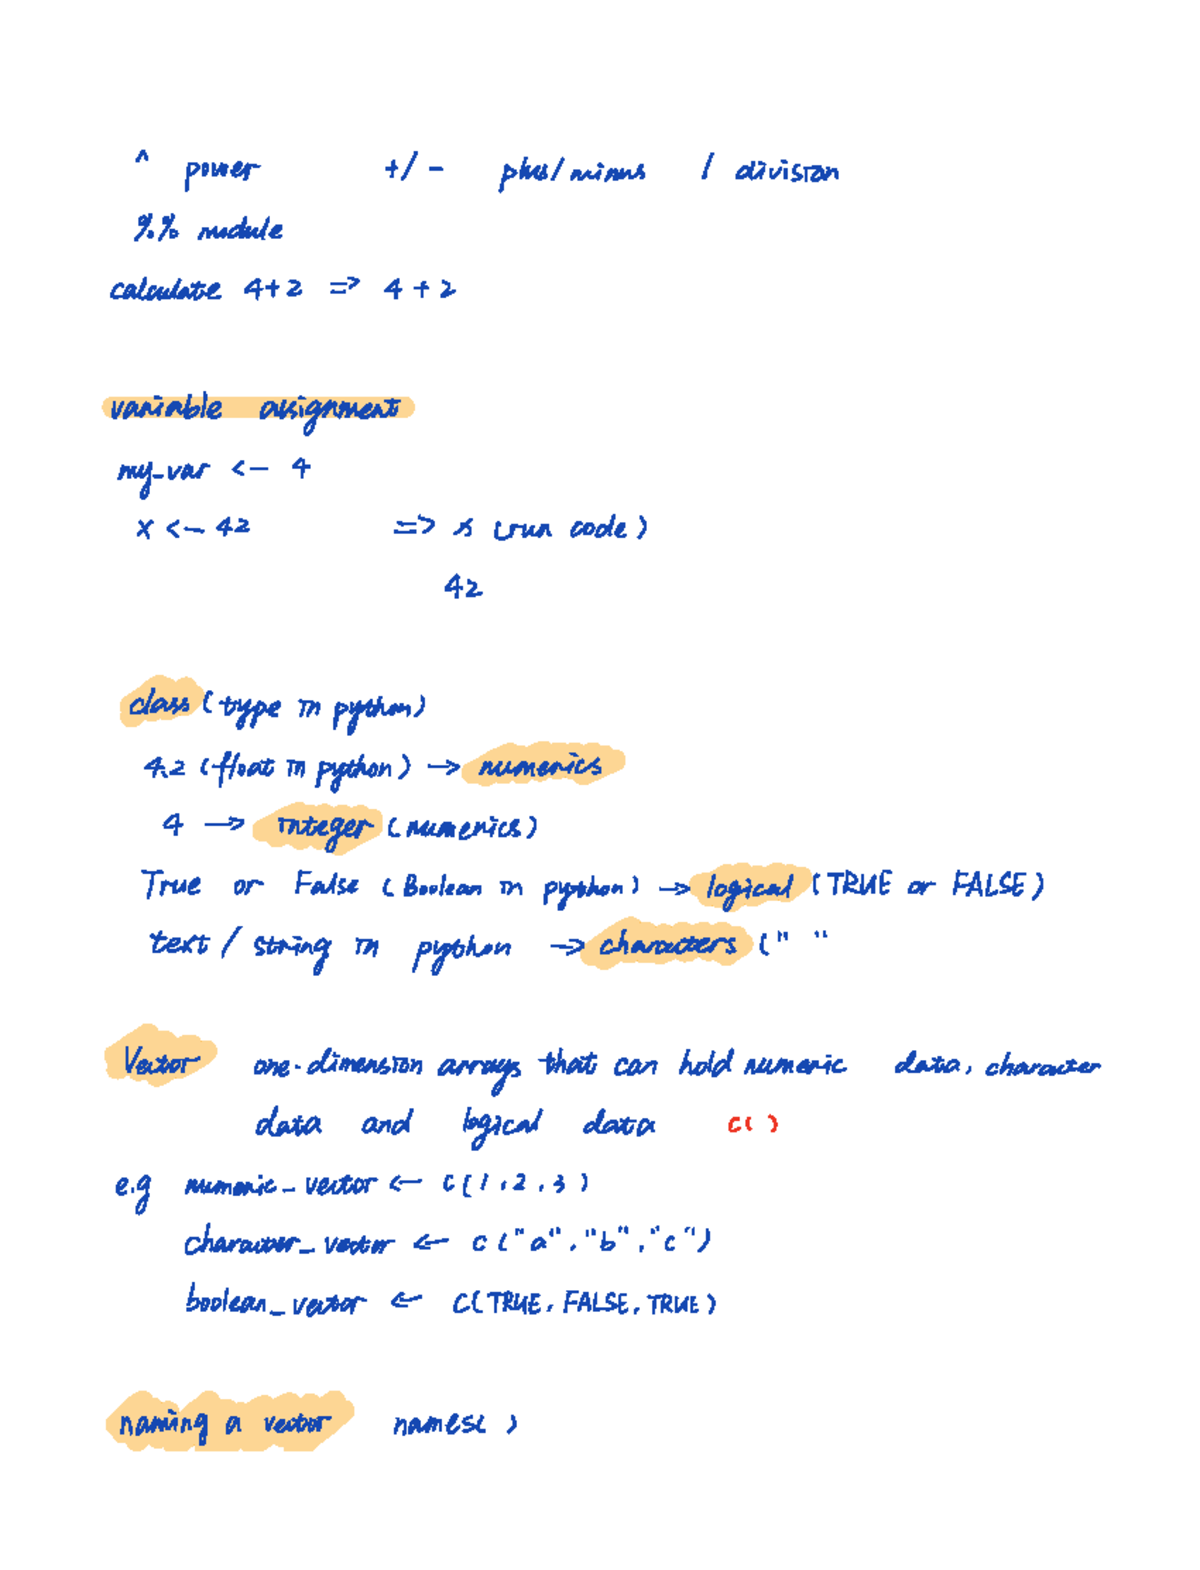 ^ power +/- plus/minus / division
%% module
calculate 4+2 => 4+2
variable assignment
my_var <- 4
x <- 42 => x (run code)
42
class (type in python)
4.2 (float in python) -> numerics
4 -> integer (numerics)
True or False (Boolean in python) -> logical (TRUE or FALSE)
text / string in python -> characters (" "
Vector one-dimension arrays that can hold numeric data, character
data and logical data c()
e.g numeric_vector <- c(1,2,3)
character_vector <- c("a","b","c")
boolean_vector <- c(TRUE, FALSE, TRUE)
naming a vector names()